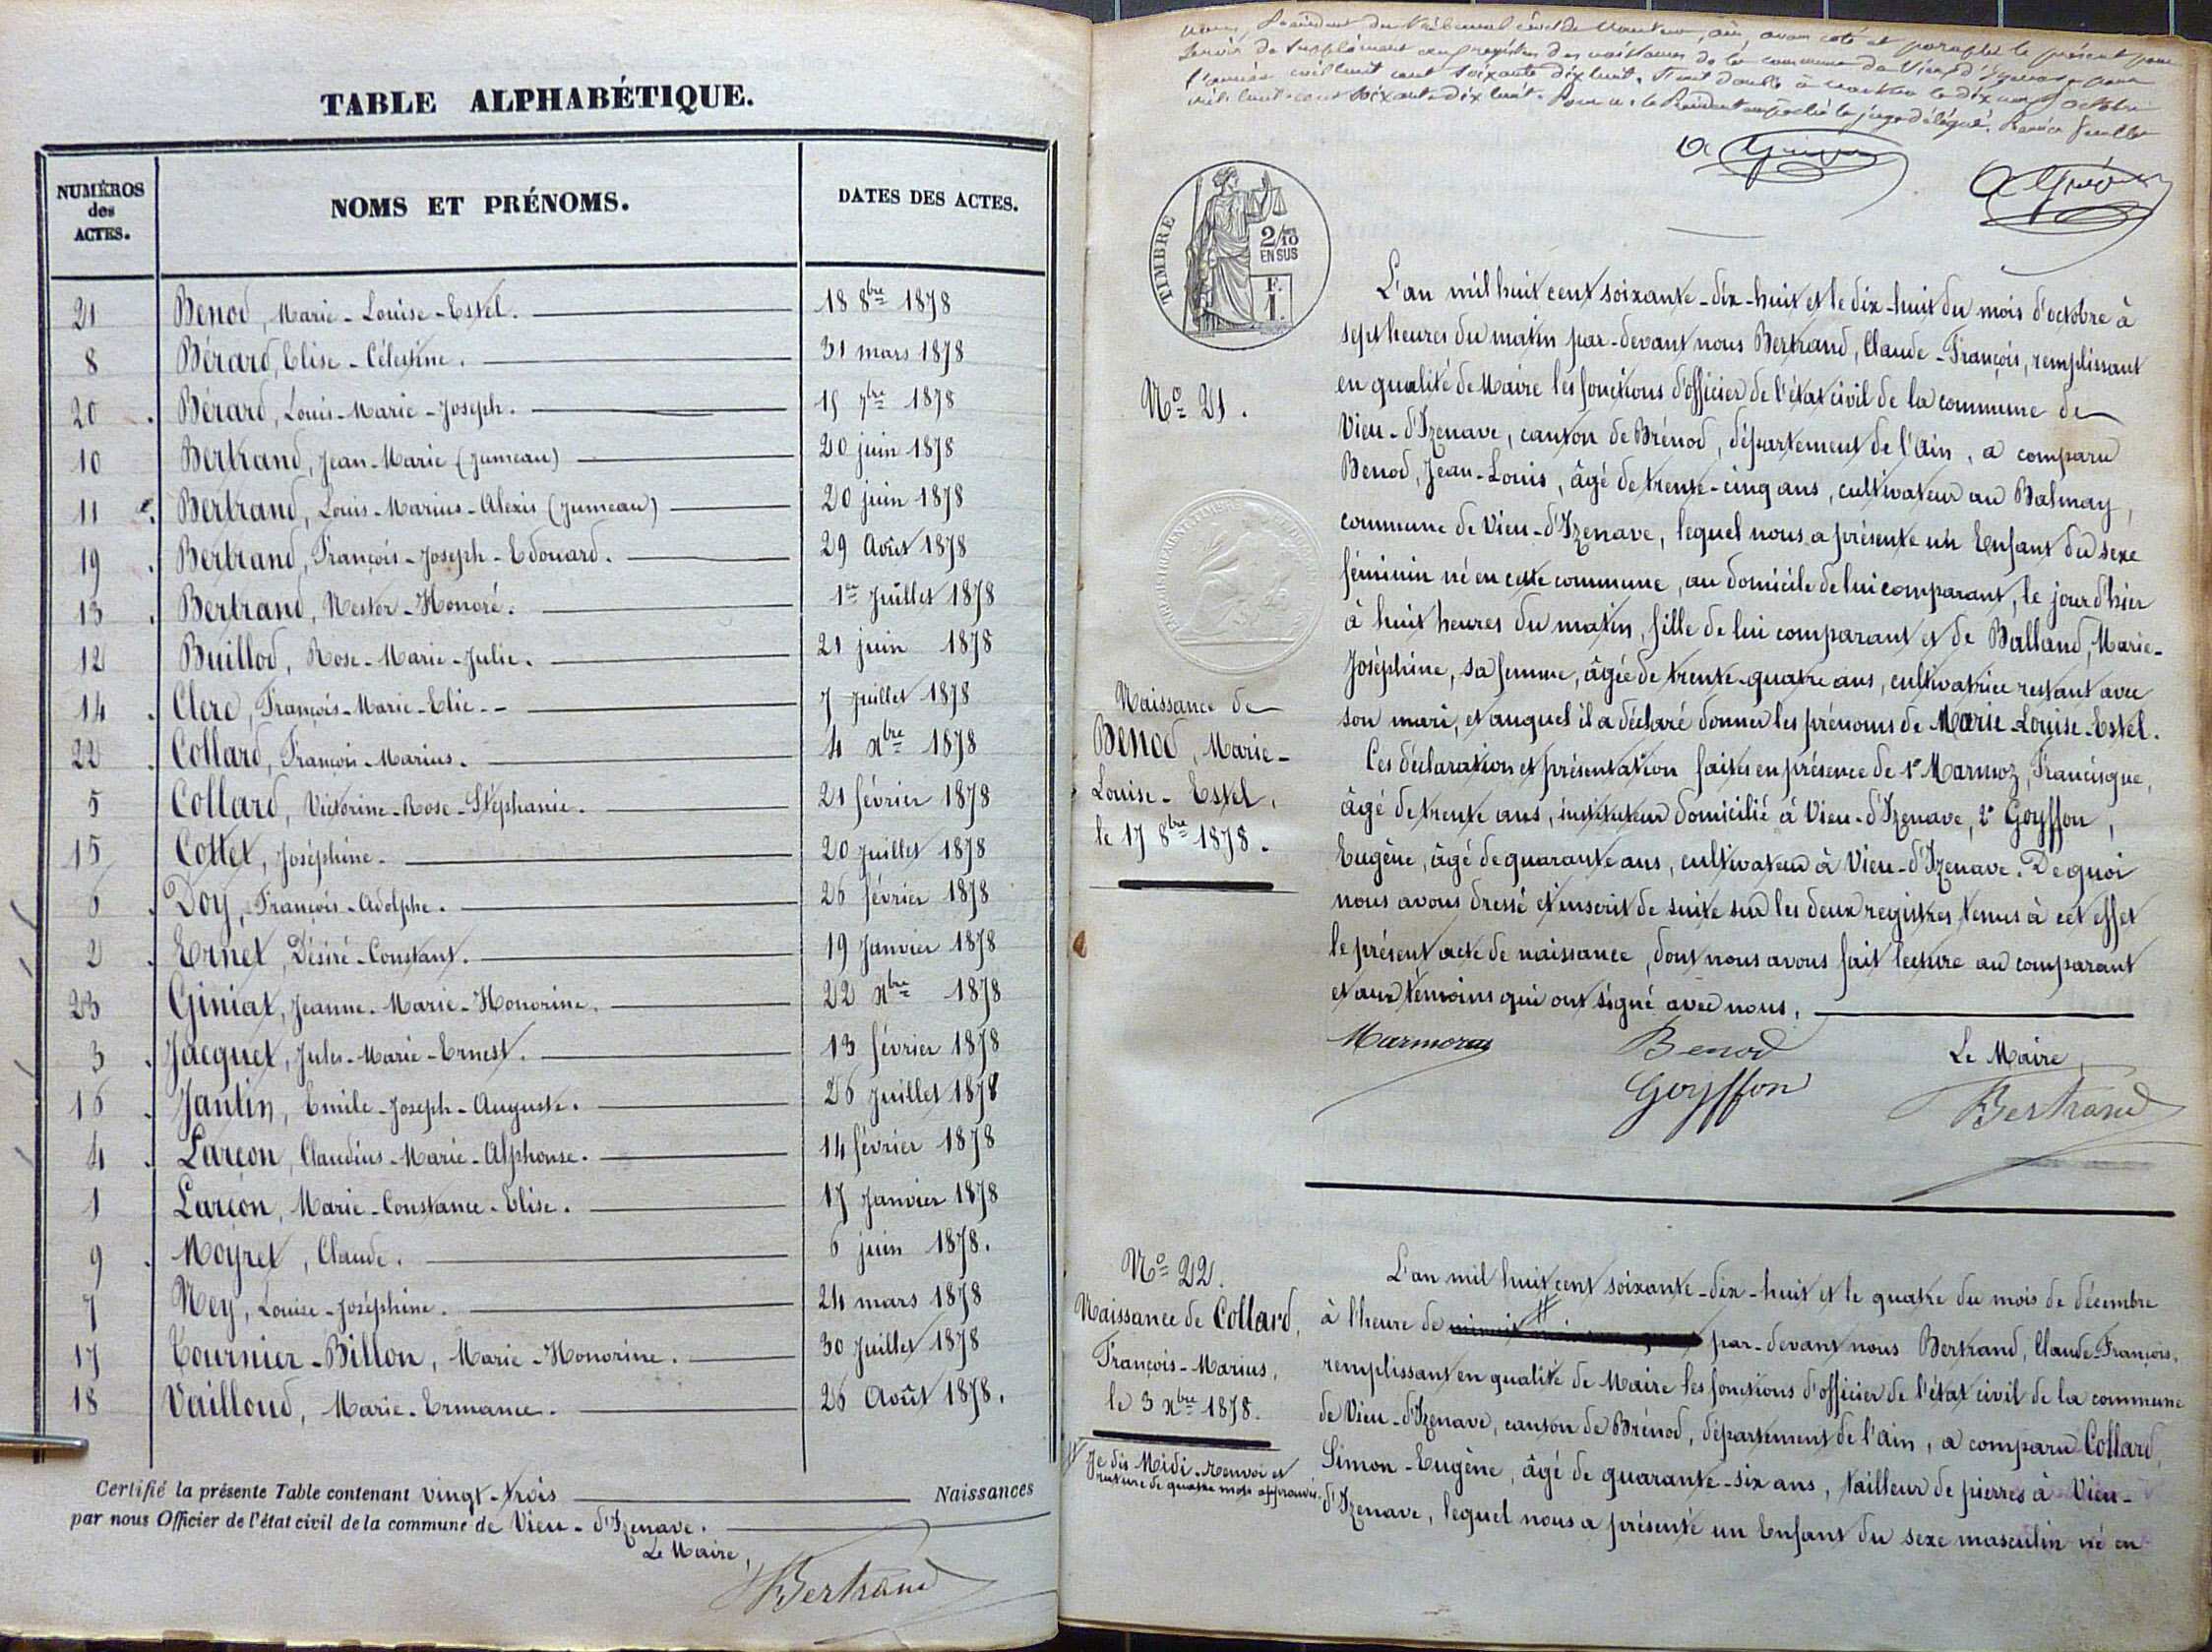 TABLE ALPHABÉTIQUE.
NUMÉROS des ACTES.
NOMS ET PRÉNOMS.
DATES DES ACTES.
21 Benod, Marie-Louise-Estel. 18 8bre 1878
8 Bérard, Elise-Célestine. 31 mars 1878
20 Bérard, Louis-Marie-Joseph. 15 7bre 1878
10 Bertrand, Jean-Marie (Jumeau) 20 juin 1878
11 Bertrand, Louis-Marius-Alexis (Jumeau) 20 juin 1878
19 Bertrand, François-Joseph-Edouard. 29 Août 1878
13 Bertrand, Nestor-Honoré. 1er Juillet 1878
12 Buillod, Rose-Marie-Julie. 21 juin 1878
14 Clerc, François-Marie-Elie. 7 Juillet 1878
22 Collard, François-Marius. 4 xbre 1878
5 Collard, Victorine-Rose-Stéphanie. 21 février 1878
15 Cottet, Joséphine. 20 Juillet 1878
6 Doy, François-Adolphe. 26 février 1878
2 Ernet, Désiré-Constant. 19 Janvier 1878
23 Giniat, Jeanne-Marie-Honorine. 22 xbre 1878
3 Jacquet, Jules-Marie-Ernest. 13 février 1878
16 Jantin, Emile-Joseph-Auguste. 26 Juillet 1878
4 Larçon, Claudius-Marie-Alphonse. 14 février 1878
1 Larçon, Marie-Constance-Elise. 17 Janvier 1878
9 Moyret, Claude. 6 juin 1878.
7 Ney, Louise-Joséphine. 24 mars 1878
17 Tournier-Billon, Marie-Honorine. 30 Juillet 1878
18 Vailloud, Marie-Ermance. 26 Août 1878.
Certifié la présente Table contenant vingt-trois Naissances
par nous Officier de l'état civil de la commune de Vieu-d'Izenave.
Le Maire,
Bertrand
Nous, Président du tribunal civil de Nantua, ain, avons coté et paraphé le présent pour
servir de supplément aux registres des naissances de la commune de Vieu d'Izenave pour
l'année mil huit cent soixante dix huit. Fait double à Nantua le dix octobre
mil huit cent soixante dix huit. Pour le Président empêché le juge délégué.
TIMBRE
2/10 EN SUS
F. 1.
No 21.
Naissance de
Benod, Marie-
Louise-Estel,
le 17 8bre 1878.
L'an mil huit cent soixante-dix-huit et le dix-huit du mois d'octobre à
sept heures du matin par-devant nous Bertrand, Claude-François, remplissant
en qualité de Maire les fonctions d'officier de l'état civil de la commune de
Vieu-d'Izenave, canton de Brénod, département de l'Ain, a comparu
Benod, Jean-Louis, âgé de trente-cinq ans, cultivateur au Balmay,
commune de Vieu-d'Izenave, lequel nous a présenté un Enfant du sexe
féminin né en cette commune, au domicile de lui comparant, le jour d'hier
à huit heures du matin, fille de lui comparant et de Balland, Marie-
Joséphine, sa femme, âgée de trente-quatre ans, cultivatrice restant avec
son mari, et auquel il a déclaré donner les prénoms de Marie-Louise-Estel.
Ces déclaration et présentation faites en présence de 1° Marmoz, Francisque,
âgé de trente ans, instituteur domicilié à Vieu-d'Izenave, 2° Goyffon,
Eugène, âgé de quarante ans, cultivateur à Vieu-d'Izenave. De quoi
nous avons dressé et inscrit de suite sur les deux registres tenus à cet effet
le présent acte de naissance, dont nous avons fait lecture au comparant
et aux témoins qui ont signé avec nous.
Marmoz Benod Le Maire,
Goyffon Bertrand
No 22.
Naissance de Collard,
François-Marius,
le 3 xbre 1878.
Je dis Midi. Renvoi et
rature de quatre mots approuvés.
L'an mil huit cent soixante-dix-huit et le quatre du mois de décembre
à l'heure de par-devant nous Bertrand, Claude-François,
remplissant en qualité de Maire les fonctions d'officier de l'état civil de la commune
de Vieu-d'Izenave, canton de Brénod, département de l'ain, a comparu Collard,
Simon-Eugène, âgé de quarante-six ans, tailleur de pierres à Vieu-
d'Izenave, lequel nous a présenté un Enfant du sexe masculin né en